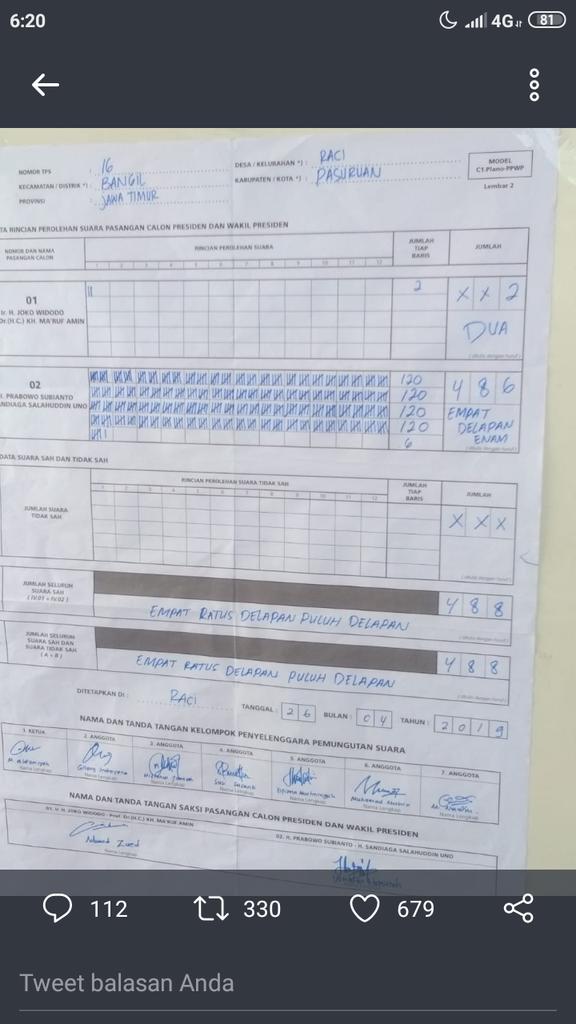 6:20
4G 81
NOMOR TPS : 16
KECAMATAN / DISTRIK *) : BANGIL
PROVINSI : JAWA TIMUR
DESA / KELURAHAN *) : RACI
KABUPATEN / KOTA *) : PASURUAN
MODEL
C1.Plano-PPWP
Lembar 2
TA RINCIAN PEROLEHAN SUARA PASANGAN CALON PRESIDEN DAN WAKIL PRESIDEN
NOMOR DAN NAMA
PASANGAN CALON
RINCIAN PEROLEHAN SUARA
1 2 3 4 5 6 7 8 9 10 11 12
JUMLAH
TIAP
BARIS
JUMLAH
01
Ir. H. JOKO WIDODO
Dr.(H.C.) KH. MA'RUF AMIN
2
X X 2
DUA
02
H. PRABOWO SUBIANTO
SANDIAGA SALAHUDDIN UNO
120
120
120
120
6
4 8 6
EMPAT
DELAPAN
ENAM
DATA SUARA SAH DAN TIDAK SAH
RINCIAN PEROLEHAN SUARA TIDAK SAH
1 2 3 4 5 6 7 8 9 10 11 12
JUMLAH
TIAP
BARIS
JUMLAH
JUMLAH SUARA
TIDAK SAH
X X X
JUMLAH SELURUH
SUARA SAH
(IV.01 + IV.02)
4 8 8
EMPAT RATUS DELAPAN PULUH DELAPAN
JUMLAH SELURUH
SUARA SAH DAN
SUARA TIDAK SAH
( A + B )
4 8 8
EMPAT RATUS DELAPAN PULUH DELAPAN
DITETAPKAN DI : RACI TANGGAL : 2 6 BULAN : 0 4 TAHUN : 2 0 1 9
NAMA DAN TANDA TANGAN KELOMPOK PENYELENGGARA PEMUNGUTAN SUARA
1. KETUA 2. ANGGOTA 3. ANGGOTA 4. ANGGOTA 5. ANGGOTA 6. ANGGOTA 7. ANGGOTA
Nama Lengkap Nama Lengkap Nama Lengkap Nama Lengkap Nama Lengkap Nama Lengkap Nama Lengkap
NAMA DAN TANDA TANGAN SAKSI PASANGAN CALON PRESIDEN DAN WAKIL PRESIDEN
01. Ir. H. JOKO WIDODO - Prof. Dr.(H.C.) KH. MA'RUF AMIN
02. H. PRABOWO SUBIANTO - H. SANDIAGA SALAHUDDIN UNO
Nama Lengkap
112 330 679
Tweet balasan Anda